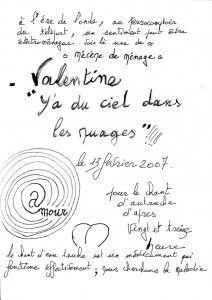 à l'ère de l'onde, au
du, un sentiment peut être
électroménager. Voilà une de
" mécène de ménage "
Valentine
"Y'a du ciel dans
les nuages"!!!!
le 13 février 2007.
@
mour
pour le chant
d'autruche
d'après
Vingt et treize
heure
le chant d'une est un médicament qui
fonctionne effectivement; nous cherchons la maladie